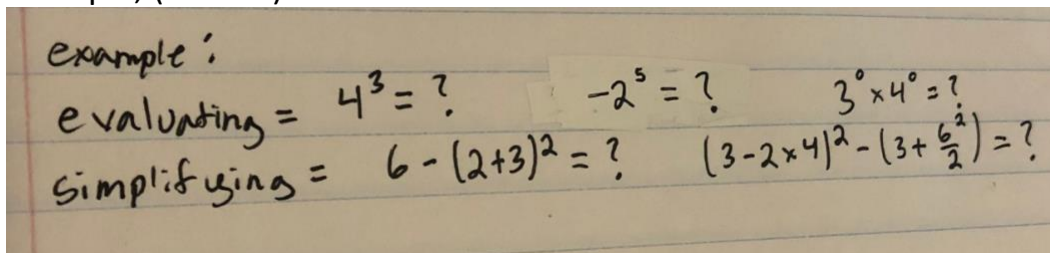 example:
evaluating = 4³ = ? -2⁵ = ? 3⁰ × 4⁰ = ?
simplifying = 6 - (2+3)² = ? (3-2×4)² - (3+6²/2) = ?